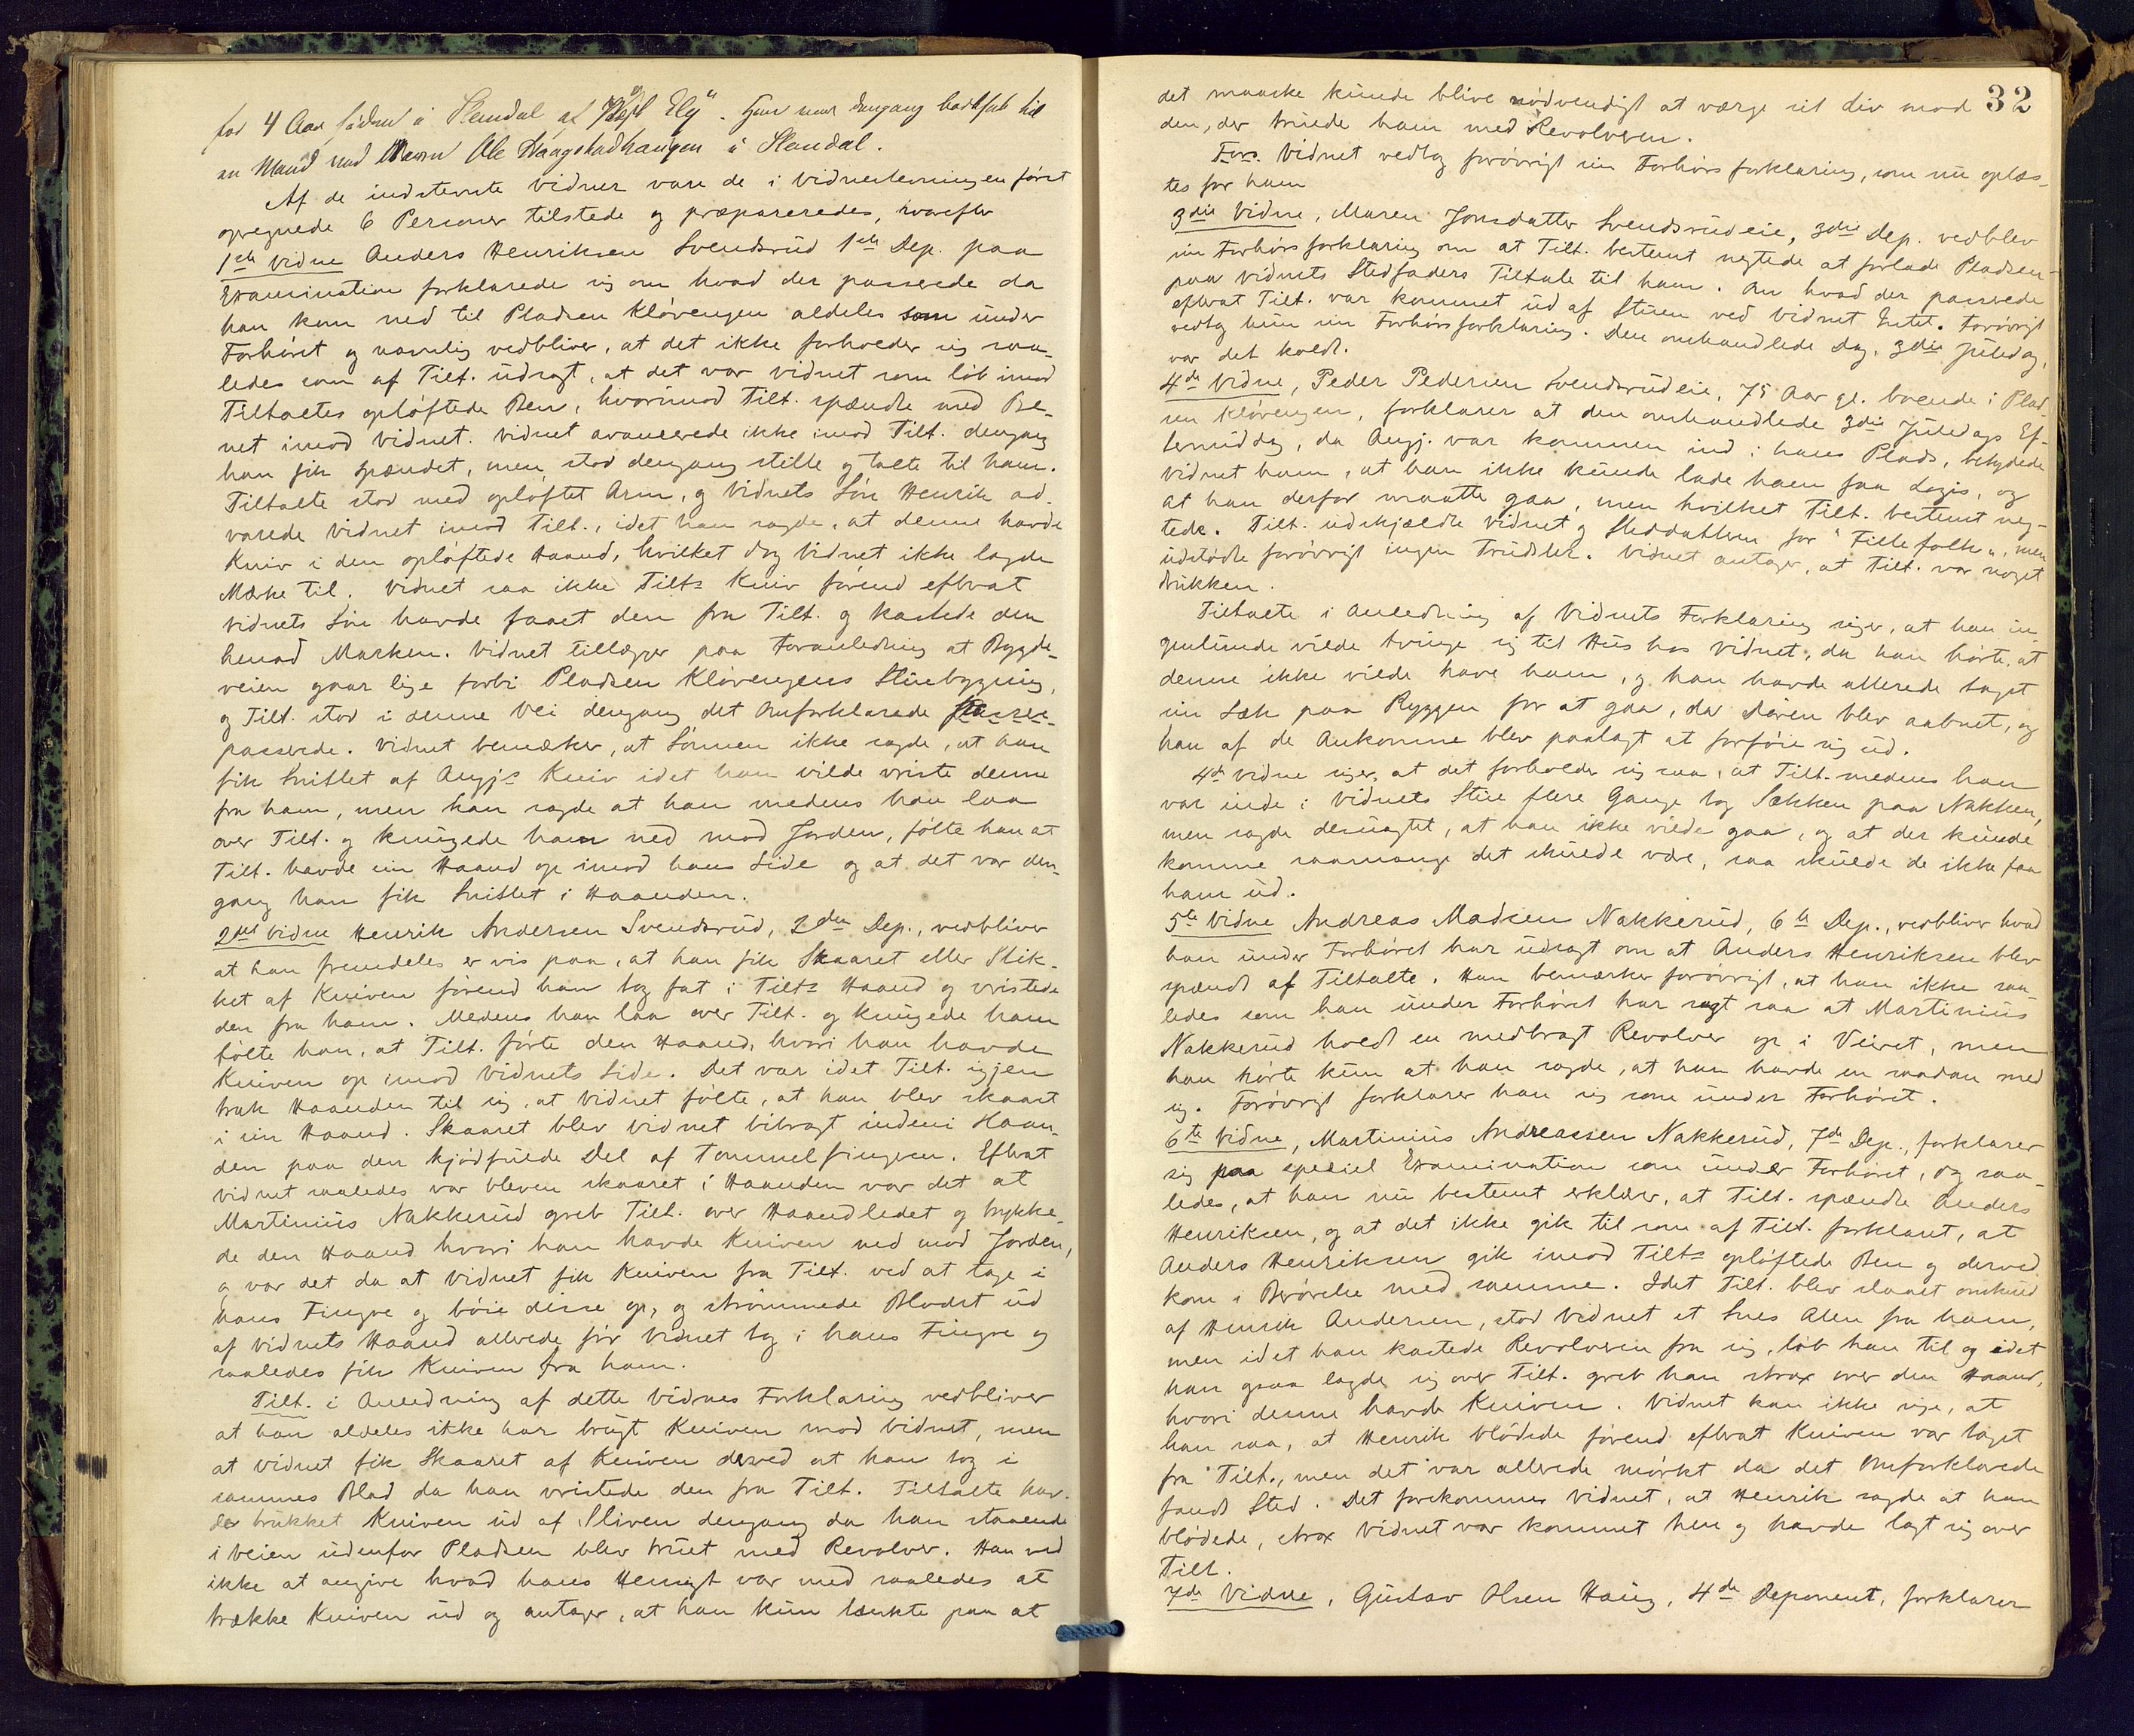 for 4 Aar siden i Slendal af  Elg". Han var dengang bosat hos
en Mand ved Navn Ole Haugstadhaugen i Slendal.
Af de indstevnte vidner vare de i vidnestevningen först
opregnede 6 Personer tilstede og præpareredes, hvorefter
1ste vidne Anders Henriksen Svendsrud 1ste Dep. paa
Examination forklarede sig om hvad der passerede da
han kom ned til Pladsen Klövengen aldeles som under
Forhöret og navnlig vedbliver, at det ikke forholder sig saa-
ledes som af Tilt. udsagt, at det var vidnet som löb imod
Tiltaltes oplöftede Ben, hvorimod Tilt. spændte med Be-
net imod vidnet. Vidnet avancerede ikke imod Tilt. dengang
han fik spændet, men stod dengang stille og talte til ham.
Tiltalte stod med oplöftet Arm, og Vidnets Sön Henrik ad-
varede Vidnet imod Tilt., idet han sagde, at denne havde
Kniv i den oplöftede Haand, hvilket dog Vidnet ikke lagde
Mærke til. Vidnet saa ikke Tilts Kniv förend efterat
vidnets Sön havde faaet den fra Tilt. og kastede den
henad Marken. Vidnet tillægger paa Foranledning at Bygde-
veien gaar lige forbi Pladsen Klövengens Stuebygning,
og Tilt. stod i denne Vei dengang det Omforklarede passe-
passerede. Vidnet bemærker, at Sönnen ikke sagde, at han
fik Snittet af Angjs Kniv idet han vilde vriste denne
fra ham, men han sagde at han medens han laa
over Tilt. og knugede ham ned mod Jorden, fölte han at
Tilt. havde sin Haand op imod hans Side og at det var den-
gang han fik Snittet i Haanden.
2det vidne Henrik Andersen Svendsrud, 2den Dep., vedbliver
at han fremdeles er vis paa, at han fik Skaaret eller Stik-
ket af Kniven förend han tog fat i Tilts Haand og vristede
den fra ham. Medens han laa over Tilt. og knugede ham
fölte han, at Tilt. förte den Haand, hvori han havde
Kniven op imod vidnets Side. Det var idet Tilt. igjen
trak Haanden til sig, at vidnet fölte, at han blev skaaret
i sin Haand. Skaaret blev vidnet bibragt indeni Haan-
den paa den kjödfulde Del af Tommelfingeren. Efterat
vidnet saaledes var bleven skaaret i Haanden var det at
Martinius Nakkerud greb Tilt. over Haandledet og trykke-
de den Haand hvori han havde Kniven ned mod Jorden,
og var det da at Vidnet fik Kniven fra Tilt. ved at tage i
hans Fingre og böie disse op, og strömmede Blodet ud
af vidnets Haand allerede för vidnet tog i hans Fingre og
saaledes fik Kniven fra ham.
Tilt. i Anledning af dette Vidnes Forklaring vedbliver
at han aldeles ikke har brugt Kniven mod vidnet, men
at vidnet fik Skaaret af Kniven derved at han tog i
sammes Blad da han vristede den fra Tilt. Tiltalte hav-
de trukket Kniven ud af Sliren dengang da han staaende
i veien udenfor Pladsen blev truet med Revolver. Han ved
ikke at angive hvad hans Hensigt var med saaledes at
trække Kniven ud og antager, at han kun tænkte paa at
32
det maaske kunde blive nödvendigt at værge sit Liv mod
den, der truede ham med Revolveren.
Fors. Vidnet vedtog forövrigt sin Forhörsforklaring, som nu oplæs-
tes for ham
3die Vidne, Maren Jonsdatter Svendsrudeie, 3die Dep. vedblev
sin Forhörsforklaring om at Tilt. bestemt negtede at forlade Pladsen
paa vidnets Stedfaders Tiltale til ham. Om hvad der passerede
efterat Tilt. var kommet ud af Stuen ved vidnet Intet. Forövrigt
vedtog hun sin Forhörsforklaring. Den omhandlede Dag, 3die Juledag,
var det koldt.
4de Vidne, Peder Pedersen Svendsrudeie, 75 Aar gl. boende i Plad-
sen Klövengen, forklarer at den omhandlede 3die Juledags Ef-
termiddag, da Angj. var kommen ind i hans Plads, betydede
vidnet ham, at han ikke kunde lade ham faa Logis, og
at han derfor maatte gaa, men hvilket Tilt. bestemt neg-
tede. Tilt. udskjældte Vidnet og Steddatteren for "Fillefolk", men
udstödte forövrigt ingen Trudsler. Vidnet antager, at Tilt. var noget
drukken.
Tiltalte i Anledning af Vidnets Forklaring siger, at han in-
genlunde vilde tvinge sig til Hus hos Vidnet, da han hörte, at
denne ikke vilde have ham, og han havde allerede taget
sin Sæk paa Ryggen for at gaa, da Dören blev aabnet, og
han af de Ankomne blev paalagt at forföie sig ud.
4de vidne siger, at det forholder sig saa, at Tilt. medens han
var inde i Vidnets Stue flere Gange tog Sækken paa Nakken,
men sagde desuagtet, at han ikke vilde gaa, og at der kunde
komme saamange det skulde være, saa skulde de ikke faa
ham ud.
5te Vidne Andreas Madsen Nakkerud, 6te Dep., vedbliver hvad
han under Forhöret har udsagt om at Anders Henriksen blev
spændt af Tiltalte. Han bemærker forövrigt, at han ikke saa-
ledes som han under Forhöret har sagt saa at Martinius
Nakkerud holdt en medbragt Revolver op i Veiret, men
han hörte kun at han sagde, at han havde en saadan med
sig. Forövrigt forklarer han sig som under Forhöret.
6te Vidne, Martinius Andreassen Nakkerud, 7de Dep., forklarer
sig paa speciel Examination som under Forhöret, og saa-
ledes, at han nu bestemt erklærer, at Tilt. spændte Anders
Henriksen, og at det ikke gik til som af Tilt. forklaret, at
Anders Henriksen gik imod Tilts oplöftede Ben og derved
kom i Berörelse med samme. Idet Tilt. blev slaaet omkuld
af Henrik Andersen, stod Vidnet et Snes Alen fra ham,
men idet han kastede Revolveren fra sig, löb han til og idet
han ogsaa lagde sig over Tilt. greb han strax over den Haand,
hvori denne havde Kniven. Vidnet kan ikke sige, at
han saa, at Henrik blödede förend efterat Kniven var taget
fra Tilt., men det var allerede mörkt da det Omforklarede
fandt Sted. Det forekommer Vidnet, at Henrik sagde at han
blödede, strax vidnet var kommet hen og havde lagt sig over
Tilt.
7de Vidne, Gustav Olsen Haug, 4de Deponent, forklarer